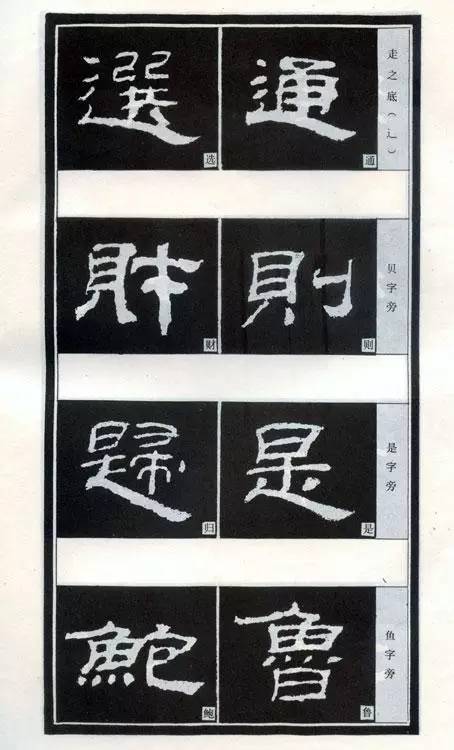 走之底(辶)
通
通
選
选
贝字旁
則
则
財
财
是字旁
是
是
歸
归
鱼字旁
魯
鲁
鮑
鲍